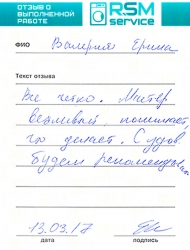 ОТЗЫВ О
ВЫПОЛНЕННОЙ
РАБОТЕ
RSM
service
ФИО
Валерия Ерина
Текст отзыва
Все четко. Мастер
вежливый, понимает,
что делает. С удов.
будем рекомендовать
13.03.17
дата
подпись